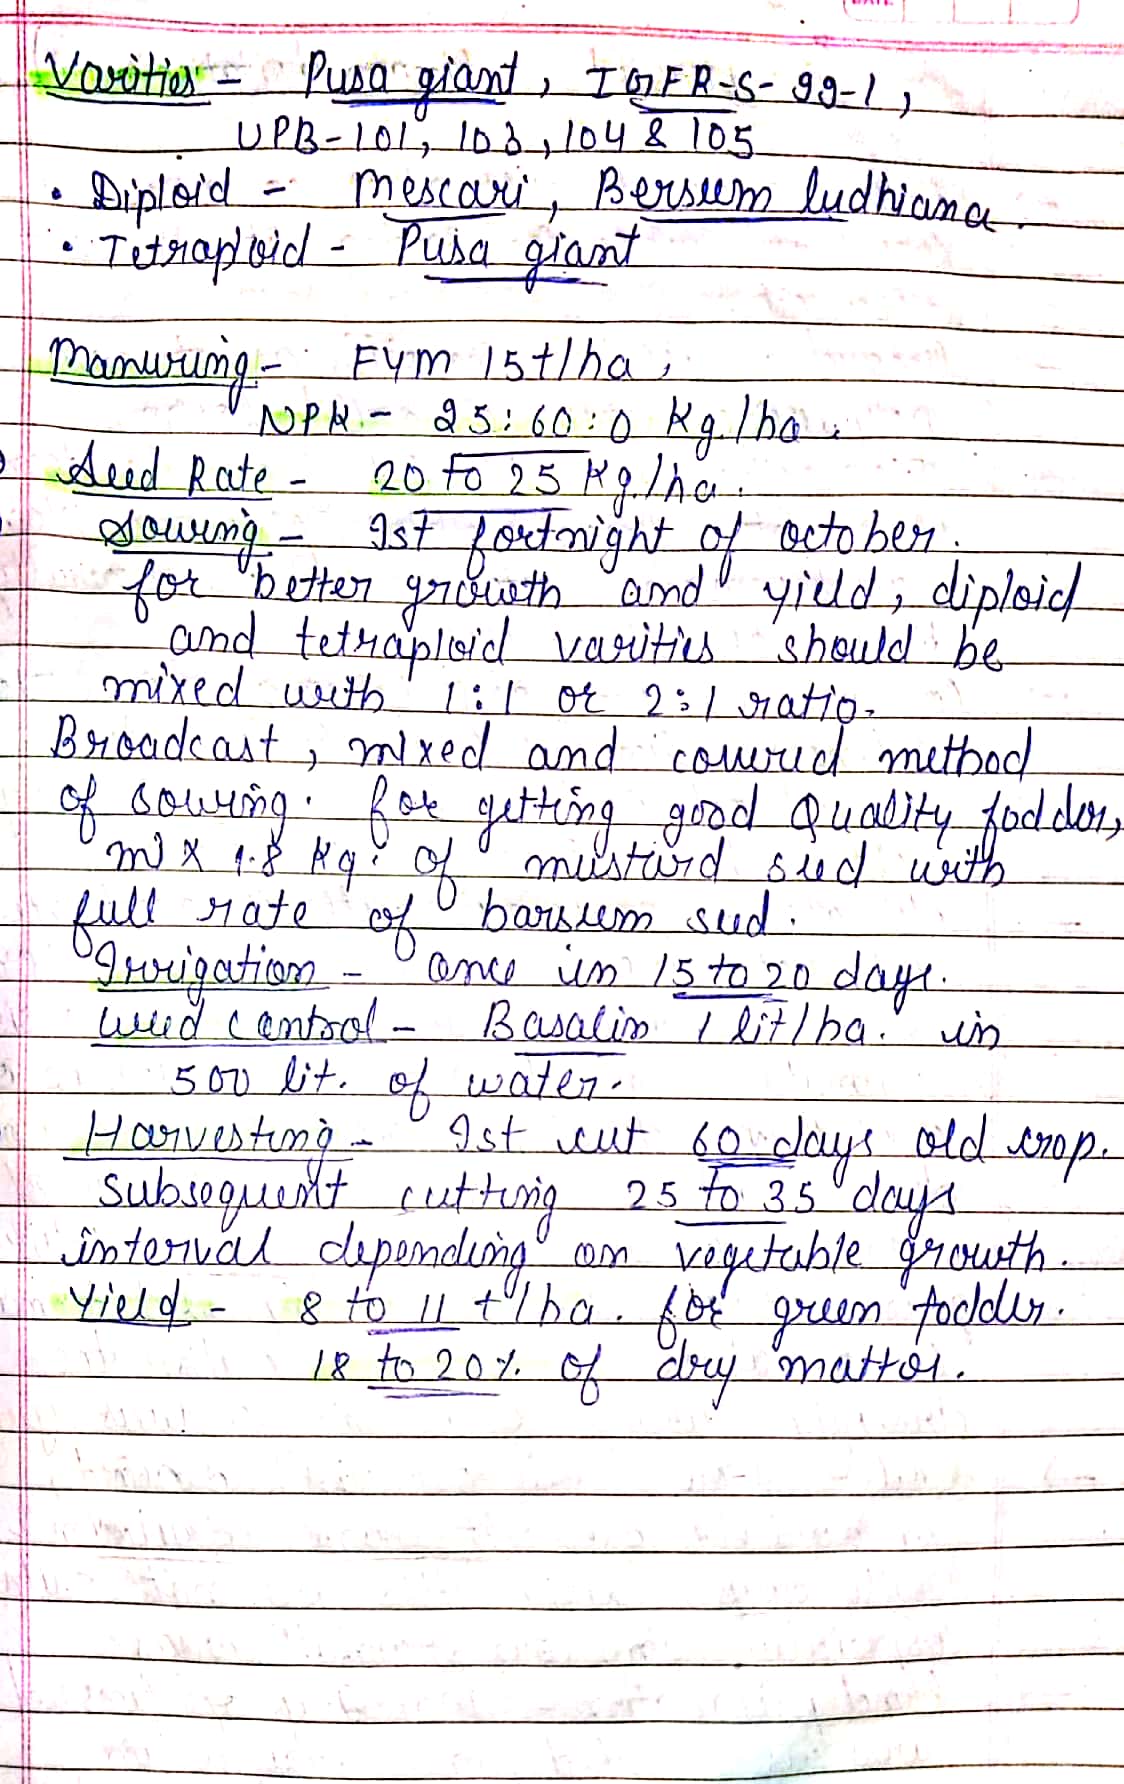 Varities - Pusa giant, IGFR-S-99-1,
UPB-101, 103, 104 & 105
• Diploid - Mescari, Berseem ludhiana.
• Tetraploid - Pusa giant
Manuring - FYM 15t/ha,
NPK - 25:60:0 Kg./ha.
Seed Rate - 20 to 25 Kg./ha.
Sowing - Ist fortnight of october.
for better growth and yield, diploid
and tetraploid varities should be
mixed with 1:1 or 2:1 ratio.
Broadcast, mixed and covered method
of sowing. for getting good Quality fodder,
mix 1.8 Kg. of musturd seed with
full rate of barseem seed.
Irrigation - once in 15 to 20 days.
Weed control - Basalin 1 lit/ha. in
500 lit. of water.
Harvesting - Ist cut 60 days old crop.
Subsequent cutting 25 to 35 days
interval depending on vegetable growth.
Yield - 8 to 11 t/ha. for green fodder.
18 to 20% of dry matter.